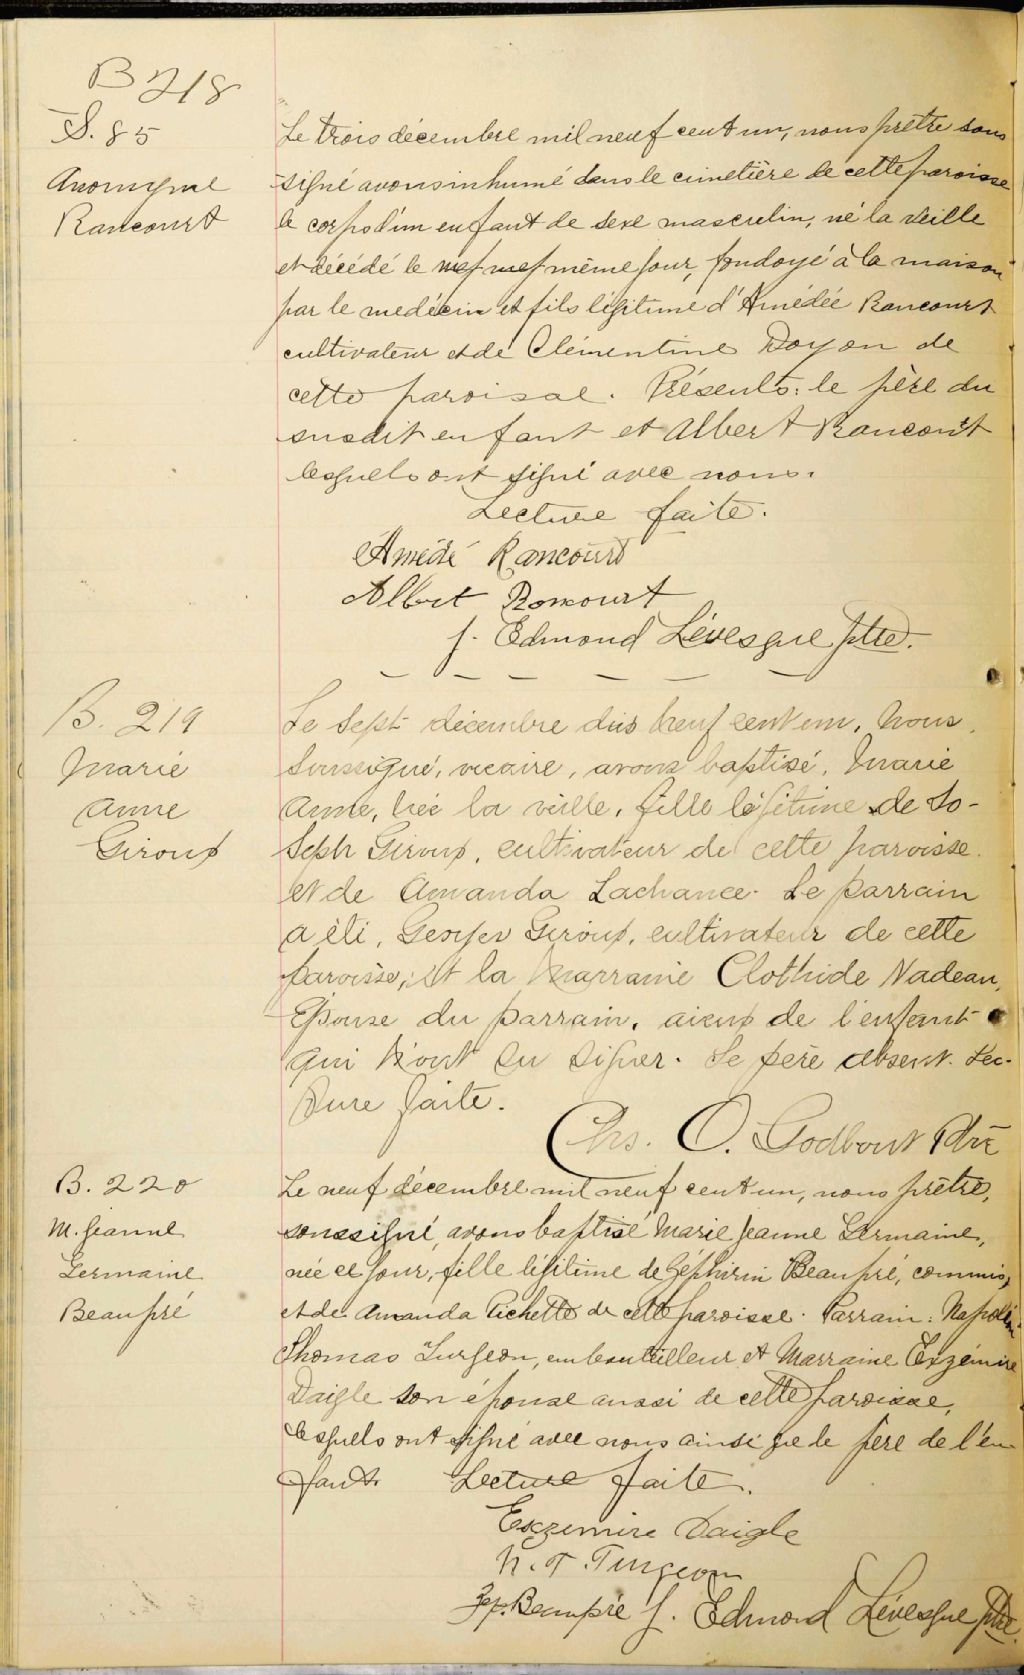 B 218
S. 85
Anonyme
Rancourt
Le trois décembre mil neuf cent un, nous prêtre sous
signé avons inhumé dans le cimetière de cette paroisse
le corps d'un enfant de sexe masculin, né la veille
et décédé le même jour, ondoyé à la maison
par le medécin et fils légitime d'Amédée Rancourt
cultivateur et de Clémentine Doyon de
cette paroisse. Présents: le père du
susdit enfant et Albert Rancourt
lesquels ont signé avec nous.
Lecture faite.
Amédé Rancourt
Albert Rancourt
J. Edmond Lévesque ptre.
B. 219
Marie
Anne
Giroux
Le sept décembre dix neuf cent un, Nous,
soussigné, vicaire, avons baptisé, Marie
Anne, née la veille, fille légitime de Jo-
seph Giroux, cultivateur de cette paroisse.
et de Amanda Lachance. Le parrain
a été, Georges Giroux, cultivateur de cette
paroisse, et la Marraine Clothide Nadeau,
Epouse du parrain, aieux de l'enfant
qui n'ont su signer. Le père absent. Lec-
ture faite.
Chs. O. Godbout Ptre
B. 220
M. Jeanne
Germaine
Beaupré
Le neuf décembre mil neuf cent un, nous prêtre,
soussigné, avons baptisé Marie Jeanne Germaine,
née ce jour, fille légitime de Zéphirin Beaupré, commis,
et de Amanda Pichette de cette paroisse. Parrain: Napoléon
Thomas Turgeon, embouteilleur et Marraine Exzémire
Daigle son épouse aussi de cette paroisse,
lesquels ont signé avec nous ainsi que le père de l'en
fant. Lecture faite.
Exzemire Daigle
N. T. Turgeon
Zep. Beaupré J. Edmond Lévesque ptre.